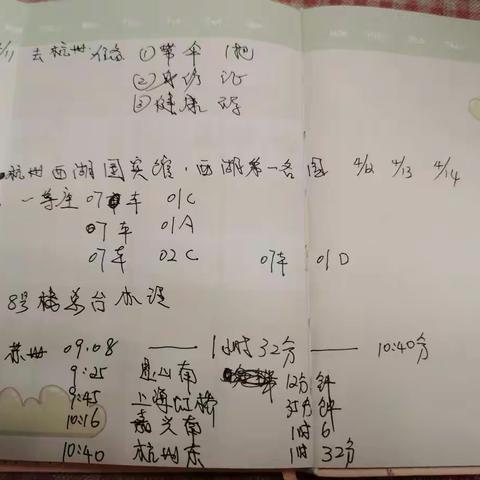 /11 去杭州 准备 ① 带伞 1把
② 身份证
③ 健康码
杭州西湖国宾馆·西湖第一名园 4/12 4/13 4/14
一等座 07车 01C
07车 01A
07车 02C 07车 01D
8号楼总台办理
苏州 09:08 —— 1小时32分 —— 10:40分
9:25 昆山南 12分钟
9:45 上海虹桥 35分钟
10:16 嘉兴南 1时6
10:40 杭州东 1时32分